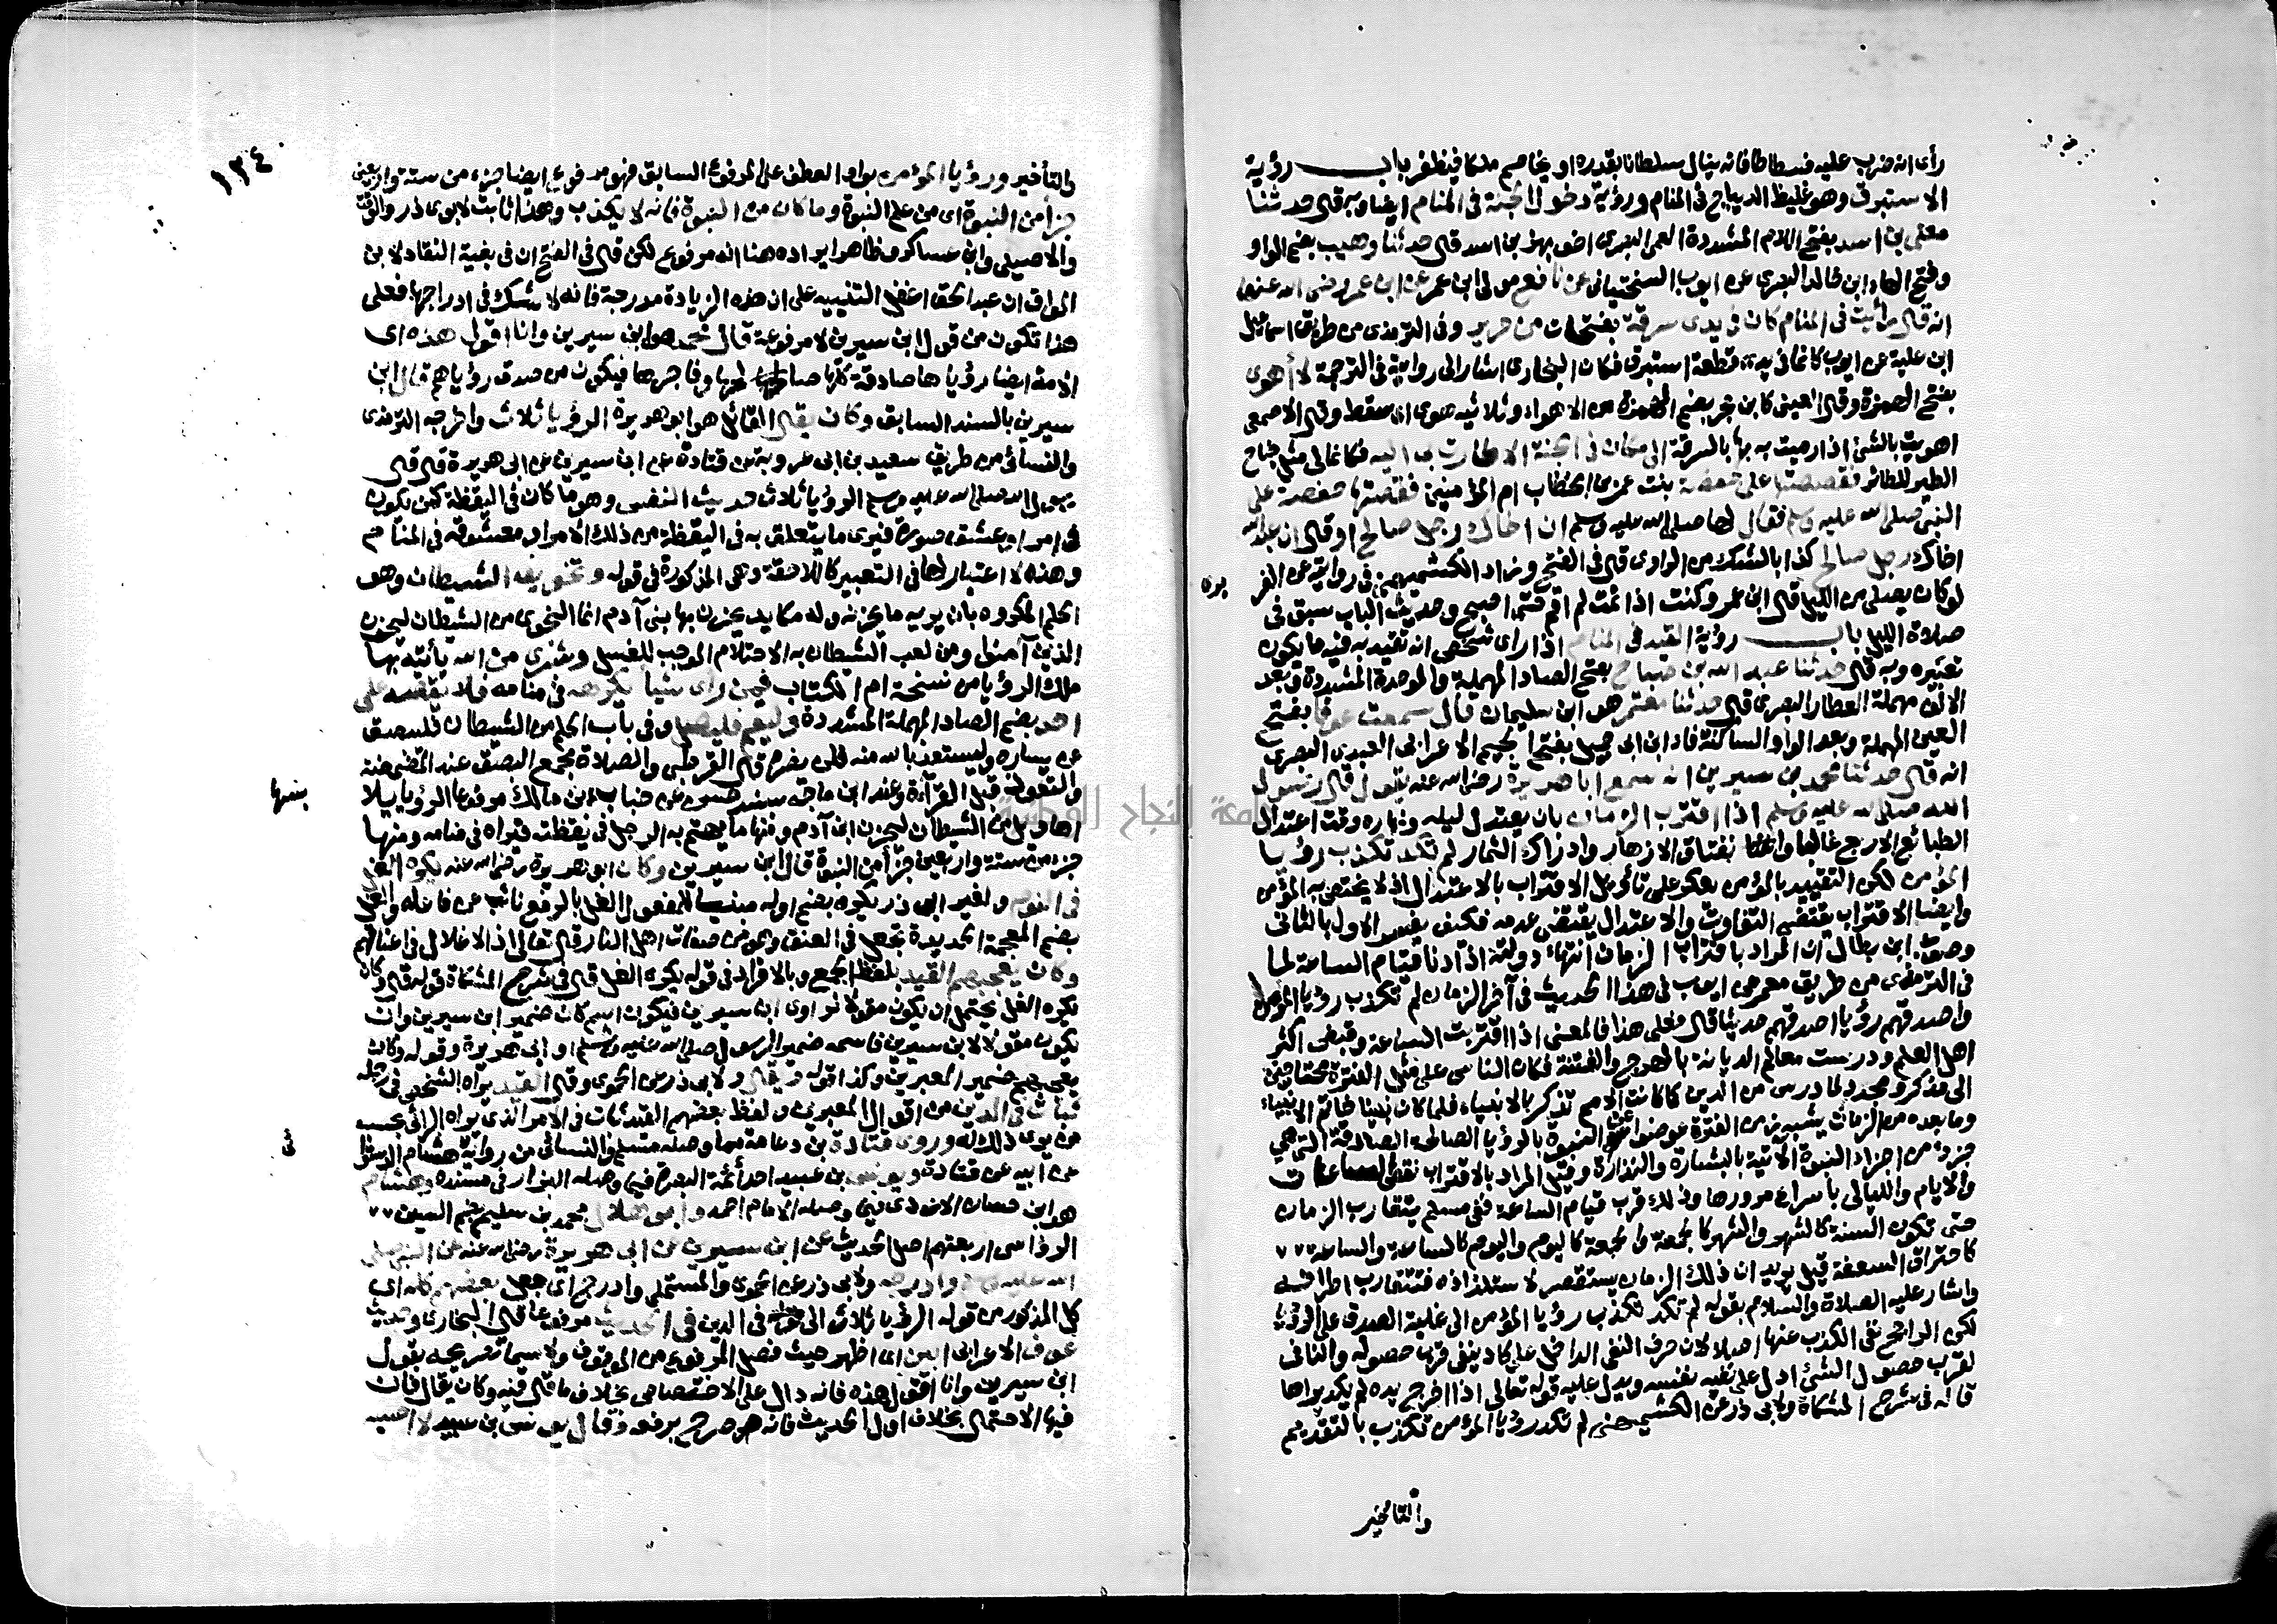 رأى انه ضرب عليه فسطاطا فانه ينال سلطانا بقدره او يخاصم ملكا فيظفر باب رؤية
الاستبرق وهو غليظ الديباج في المنام ورؤية دخول الجنة في المنام ايضا وبه قال حدثنا
معلى بن اسد بفتح اللام المشددة العمى البصرى اخو بهز بن اسد قال حدثنا وهيب بضم الواو
وفتح الهاء ابن خالد البصرى عن ايوب السختيانى عن نافع مولى ابن عمر عن ابن عمر رضى الله عنهما
انه قال رأيت في المنام كان في يدى سرقة بفتحات من حرير وفى الترمذى من طريق اسماعيل
ابن علية عن ايوب كانما في يدى قطعة استبرق فكان البخارى اشار الى روايته في الترجمة لا أهوى
بفتح الهمزة وقال العينى كابن حجر بضم الهمزة من الاهواء وثلاثيه هوى اى سقط وقال الاصمعى
اهويت بالشئ اذا رميت به بها بالسرقة الى مكان في الجنة الا طارت بى اليه فكانها لى مثل جناح
الطير للطائر فقصصتها على حفصة بنت عمر بن الخطاب ام المؤمنين فقصتها حفصة على
النبى صلى الله عليه وسلم فقال لها صلى الله عليه وسلم ان اخاك رجل صالح او قال ان عبد الله
اخاك رجل صالح كذا بالشك من الراوى قال في الفتح وزاد الكشميهنى في روايته عن الفربرى
لو كان يصلى من الليل قال ابن عمر وكنت اذا نمت لم اقم حتى اصبح وحديث الباب سبق في
صلاة الليل باب رؤية القيد في المنام اذا رأى شخص انه تقيد به فيه ما يكون
تعبيره وبه قال حدثنا عبد الله بن صباح بفتح الصاد المهملة والموحدة المشددة وبعد
الالف مهملة العطار البصرى قال حدثنا معتمر هو ابن سليمان قال سمعت عوفا بفتح
العين المهملة وبعد الواو الساكنة فاء ابن ابى جميلة بفتح الجيم الاعرابى العبدى البصرى
انه قال حدثنا محمد بن سيرين انه سمع ابا هريرة رضى الله عنه يقول قال رسول
الله صلى الله عليه وسلم اذا اقترب الزمان بان يعتدل ليله ونهاره وقت اعتدال
الطبائع الاربع غالبا وانفتاق الازهار وادراك الثمار لم تكد تكذب رؤيا
المؤمن لكن التقييد بالمؤمن يعكر على تأويل الاقتراب بالاعتدال اذ لا يختص به المؤمن
وايضا الاقتراب يقتضى التفاوت والاعتدال يقتضى عدمه فكيف يفسر الاول بالثانى
وصوب ابن بطال ان المراد باقتراب الزمان انتهاء دولته اذا دنا قيام الساعة لما
في الترمذى من طريق معمر عن ايوب في هذا الحديث في آخر الزمان لم تكذب رؤيا المؤمن
واصدقهم رؤيا اصدقهم حديثا قال فعلى هذا فالمعنى اذا اقتربت الساعة وقبض اكثر
اهل العلم ودرست معالم الديانة بالهرج والفتنة فكان الناس على مثل الفترة محتاجين
الى مذكر ومجدد لما درس من الدين كما كانت الامم تذكر بالانبياء فلما كان نبينا خاتم الانبياء
وما بعده من الزمان يشبه زمن الفترة عوضوا عن النبوة بالرؤيا الصالحة الصادقة التى هى
جزء من اجزاء النبوة الآتية بالبشارة والنذارة وقيل المراد بالاقتراب نقص الساعات
والايام والليالى باسراع مرورها وذلك قرب قيام الساعة ففى مسلم يتقارب الزمان
حتى تكون السنة كالشهر والشهر كالجمعة والجمعة كاليوم واليوم كالساعة والساعة
كاحتراق السعفة قيل يريد ان ذلك الزمان يستقصر لاستلذاذه فتتقارب اطرافه
واشار عليه الصلاة والسلام بقوله لم تكد تكذب رؤيا المؤمن الى غلبة الصدق على الرؤيا
لكن الراجح نفى الكذب عنها اصلا لان حرف النفى الداخل على كاد ينفى قرب حصوله والنافى
لقرب حصول الشئ ادل على نفيه نفسه ويدل عليه قوله تعالى اذا اخرج يده لم يكد يراها
قاله في شرح المشكاة ولابى ذر عن الكشميهنى لم تكد رؤيا المؤمن تكذب بالتقديم
والتأخير
١٣٤
والتأخير ورؤيا المؤمن بواو العطف على المرفوع السابق فهو مرفوع ايضا جزء من ستة واربعين
جزأ من النبوة اى من علم النبوة وما كان من النبوة فانه لا يكذب وهذا ثابت لابوى ذر والوقت
والاصيلى وابن عساكر وظاهر ايراده هنا انه مرفوع لكن قال في الفتح ان في بغية النقاد لابن
المواق ان عبد الحق اغفل التنبيه على ان هذه الزيادة مدرجة فانه لا شك في ادراجها فعلى
هذا تكون من قول ابن سيرين لا مرفوعة قال محمد هو ابن سيرين وانا اقول هذه اى
الامة ايضا رؤياها صادقة كلها صالحها وفاجرها فيكون من صدق رؤياهم قال ابن
سيرين بالسند السابق وكان يقال القائل هو ابو هريرة الرؤيا ثلاث واخرجه الترمذى
والنسائى من طريق سعيد بن ابى عروبة عن قتادة عن ابن سيرين عن ابى هريرة قال قال
رسول الله صلى الله عليه وسلم الرؤيا ثلاث حديث النفس وهو ما كان في اليقظة كمن يكون
في امر او يعشق صورة فيرى ما يتعلق به في اليقظة من ذلك الامر او معشوقه في المنام
وهذه لا اعتبار لها في التعبير كاللاحقة وهى المذكورة في قوله وتخويف الشيطان وهو
الحلم المكروه بان يريه ما يحزنه وله مكايد يحزن بها بنى آدم انما النجوى من الشيطان ليحزن
الذين آمنوا ومن لعب الشيطان به الاحتلام الموجب للغسل وبشرى من الله يأتيه بها
ملك الرؤيا من نسخة ام الكتاب فمن رأى شيأ يكرهه في منامه فلا يقصه على
احد بضم الصاد المهملة المشددة وليقم فليصل وفى باب الحلم من الشيطان فليبصق
عن يساره وليستعذ بالله منه فلن يضره قال القرطبى والصلاة تجمع البصق عند المضمضة
والتعوذ قبل القراءة وعند ابن ماجه بسند حسن عن عوف بن مالك مرفوعا الرؤيا ثلاث
منها
اهاويل من الشيطان ليحزن ابن آدم ومنها ما يهتم به الرجل في يقظته فيراه في منامه ومنها
جزء من ستة واربعين جزأ من النبوة قال ابن سيرين وكان ابو هريرة رضى الله عنه يكره الغل
في النوم ولغير ابى ذر يكره بضم اوله مبنيا للمفعول الغل بالرفع نائب عن فاعله والغل
بضم المعجمة الحديدة تجعل في العنق وهو من صفات اهل النار قال تعالى اذ الاغلال في اعناقهم
وكان يعجبهم القيد بلفظ الجمع وبالافراد في قوله يكره الغل قال في شرح المشكاة قوله قال وكان
يكره الغل يحتمل ان يكون مقولا لراوى ابن سيرين فيكون اسم كان ضمير ابن سيرين وان
يكون مقولا لابن سيرين فاسمه ضمير الرسول صلى الله عليه وسلم او ابى هريرة وقوله وكان
يعجبهم ضمير المعبرين وكذا قوله ويقال ولابى ذر عن الحموى وقال القيد يراه الشخص في رجله
ثبات في الدين من اقوال المعبرين ولفظ بعضهم القيد ثبات في الامر الذى يراه الرائى بحسب
من يرى ذلك له وروى قتادة بن دعامة مما وصله مسلم والنسائى من رواية هشام الدستوائى
عن ابيه عن قتادة ويونس بن عبيد احد أئمة البصرة فيما وصله البزار في مسنده وهشام
هو ابن حسان الازدى فيما وصله الامام احمد وابو هلال محمد بن سليم بضم السين
الراسبى اربعتهم اصل الحديث عن ابن سيرين عن ابى هريرة رضى الله عنه عن النبى صلى
الله عليه وسلم وادرجه ولابى ذر عن الحموى والمستملى وادرج اى جعل بعضهم كله اى
كل المذكور من قوله الرؤيا ثلاث الى في الدين في الحديث مرفوعا قال البخارى وحديث
عوف الاعرابى ابين اى اظهر حيث فصل المرفوع من الموقوف ولا سيما تصريحه بقول
ابن سيرين وانا اقول هذه فانه دال على الاختصاص بخلاف ما قال فيه وكان يقال فان
فيها الاحتمال بخلاف اول الحديث فانه صرح برفعه وقال يونس بن عبيد لا احسبه